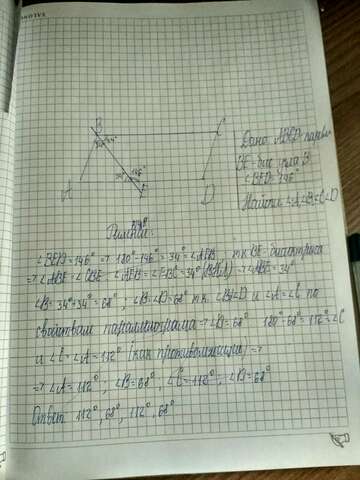 B
C
34° 34°
146°
34°
A
E
D
Дано ABCD-парал
BE-бис угла B
∠BED=146°
Найти ∠A,∠B,∠C,∠D
Решение:
∠BED=146° => 180°-146°=34°=∠AEB, тк BE-биссектриса
=> ∠ABE=∠CBE ∠AEB=∠EBC=34° => ∠ABE=34°
∠B=34°+34°=68°; ∠B=∠D=68° тк ∠B=∠D и ∠A=∠C по
свойствам параллелограма => ∠D=68° 180°-68°=112°=∠C
и ∠C=∠A=112° (как противолежащие) =>
=> ∠A=112°; ∠B=68°; ∠C=112°; ∠D=68°
Ответ 112°, 68°, 112°, 68°